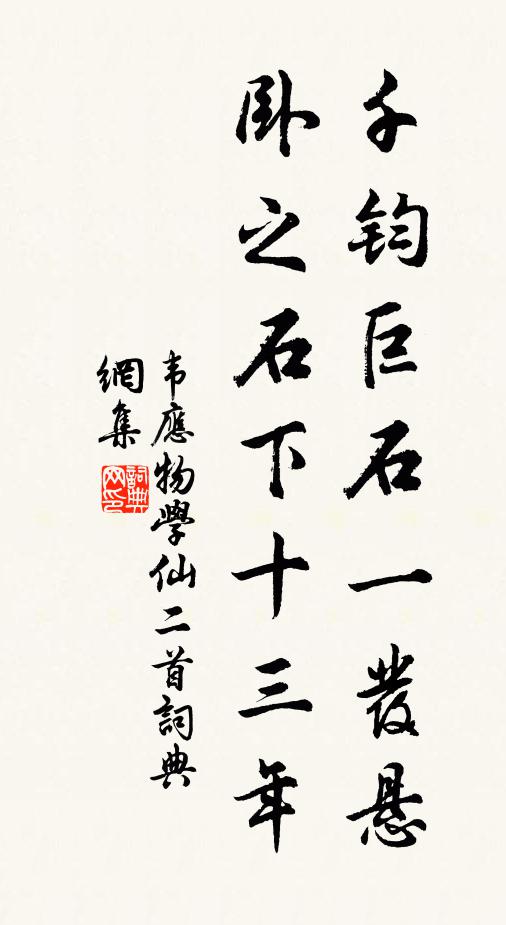 千鈞巨石一發悬
卧之石下十三年
韦應物學仙二首詞典
網集
詞典
网印